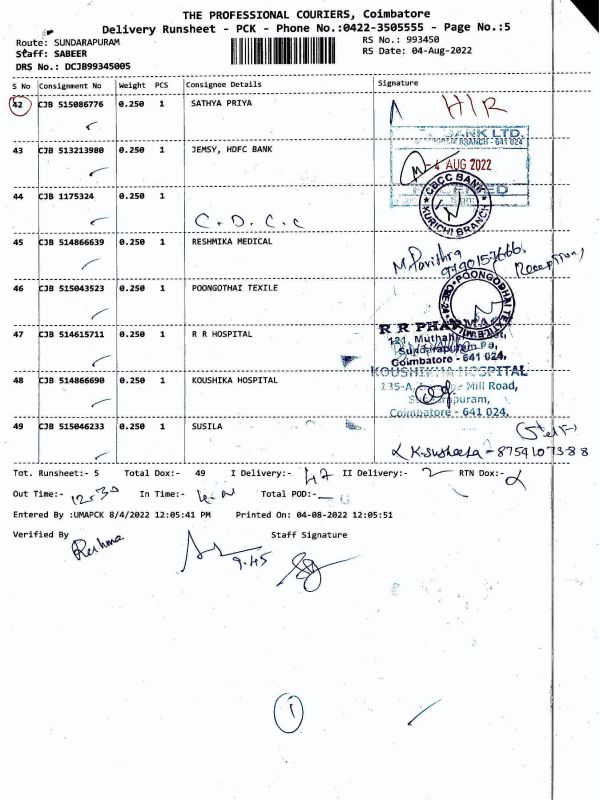 THE PROFESSIONAL COURIERS, Coimbatore
Delivery Runsheet - PCK - Phone No.:0422-3505555 - Page No.:5
Route: SUNDARAPURAM RS No.: 993450
Staff: SABEER RS Date: 04-Aug-2022
DRS No.: DCJB99345005
S No Consignment No Weight PCS Consignee Details Signature
42 CJB 515086776 0.250 1 SATHYA PRIYA
HIR
BANK LTD.
BRANCH - 641 024
43 CJB 513213980 0.250 1 JEMSY, HDFC BANK
4 AUG 2022
CBCC BANK
KURICHI BRANCH
44 CJB 1175324 0.250 1
C.D.C.C
45 CJB 514866639 0.250 1 RESHMIKA MEDICAL
M. Pavithra
Reception
46 CJB 515043523 0.250 1 POONGOTHAI TEXILE
POONGOTHAI TEXTILE MILL
47 CJB 514615711 0.250 1 R R HOSPITAL
R R PHA
121, Mutha
Sundarapuram
Coimbatore - 641 024.
48 CJB 514866690 0.250 1 KOUSHIKA HOSPITAL
KOUSHIKHA HOSPITAL
135-A, Mill Road,
Sundarapuram,
Coimbatore - 641 024.
49 CJB 515046233 0.250 1 SUSILA
K. Susheela - 8754107388
Tot. Runsheet:- 5 Total Dox:- 49 I Delivery:- 47 II Delivery:- 2 RTN Dox:-
Out Time:- 12.30 In Time:- Total POD:-
Entered By :UMAPCK 8/4/2022 12:05:41 PM Printed On: 04-08-2022 12:05:51
Verified By Staff Signature
Reshma
9.45
1